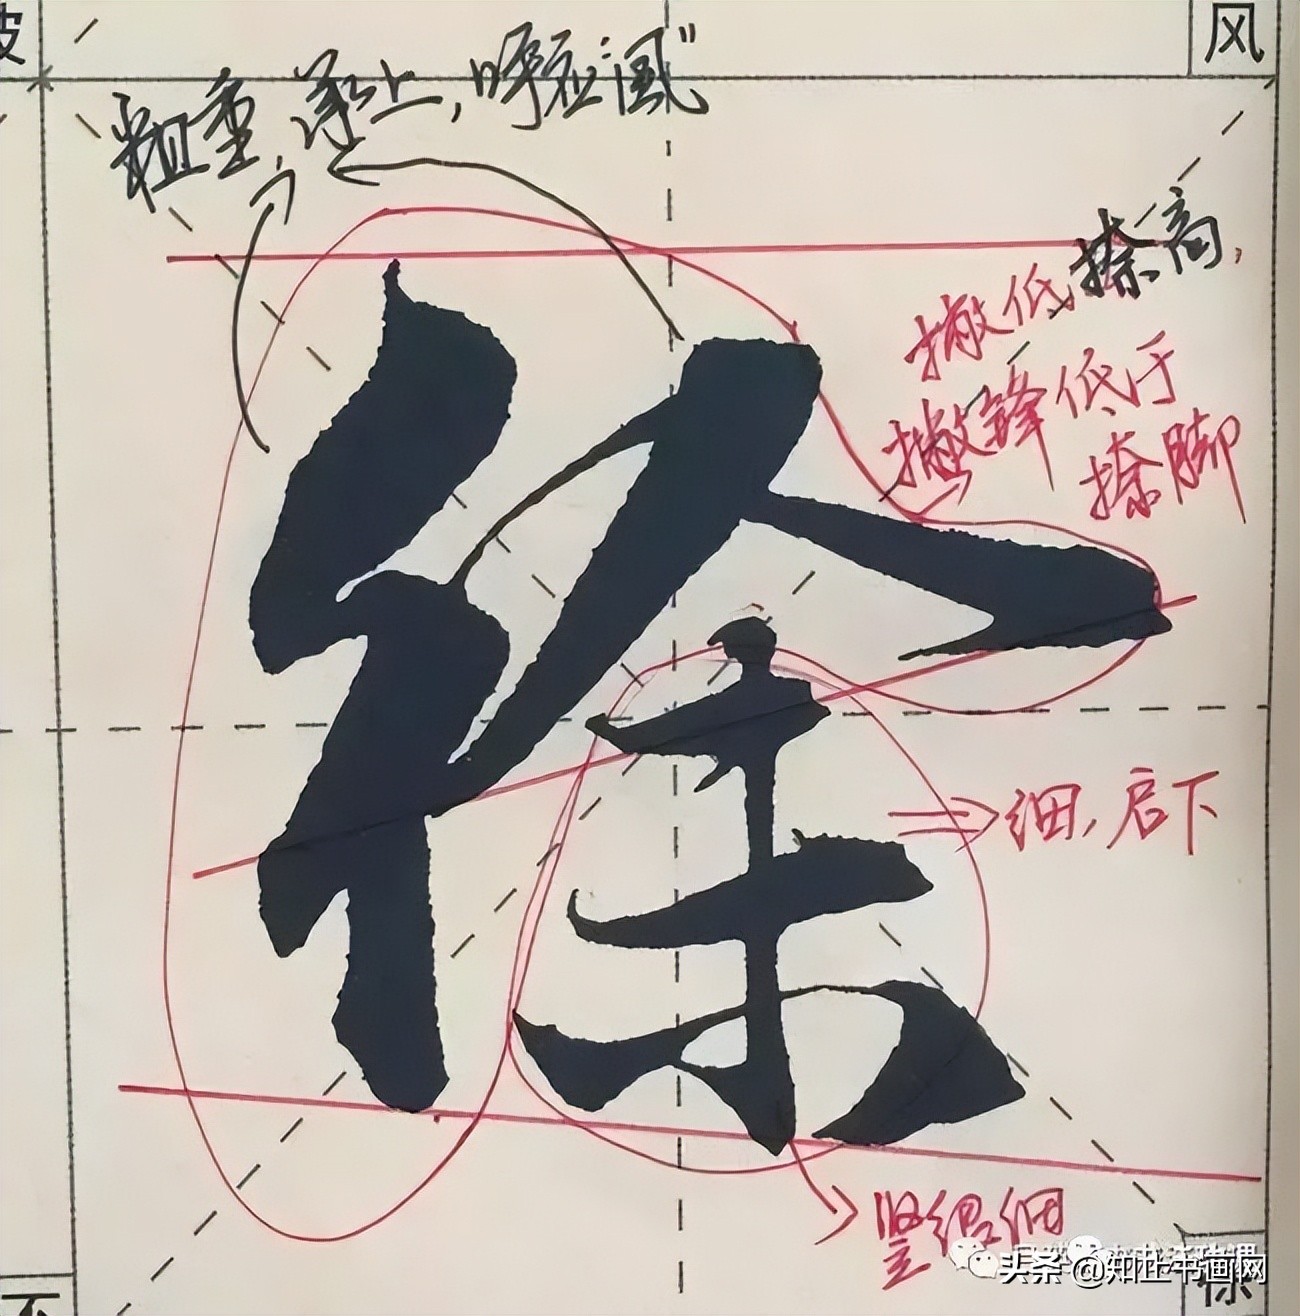 风
粗重,承上,呼应“風”
撇低捺高,
撇锋低于
捺脚
徐
细,启下
竖偏细
头条 @知止书画网
徐
不